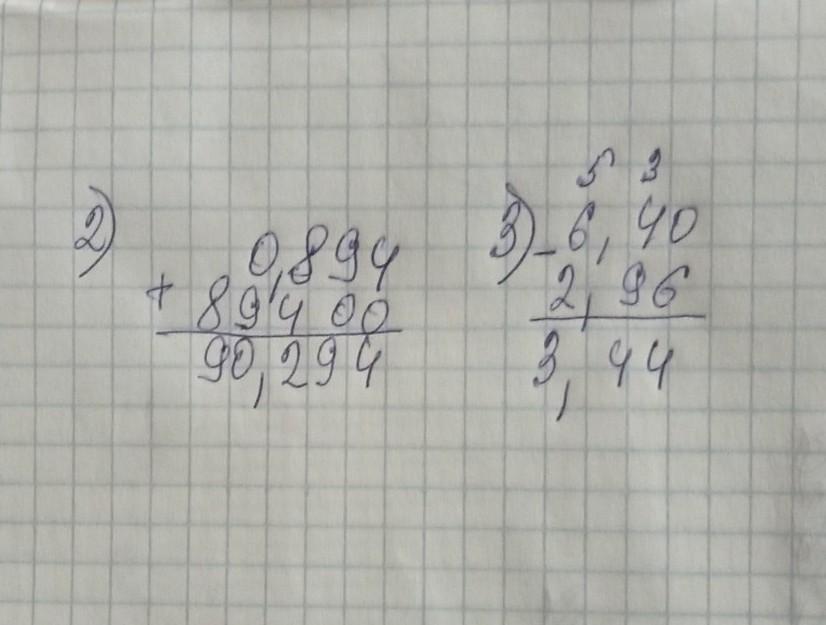 2)
0,894
+ 89,400
90,294
3)
5 3
- 6,40
2,96
3,44